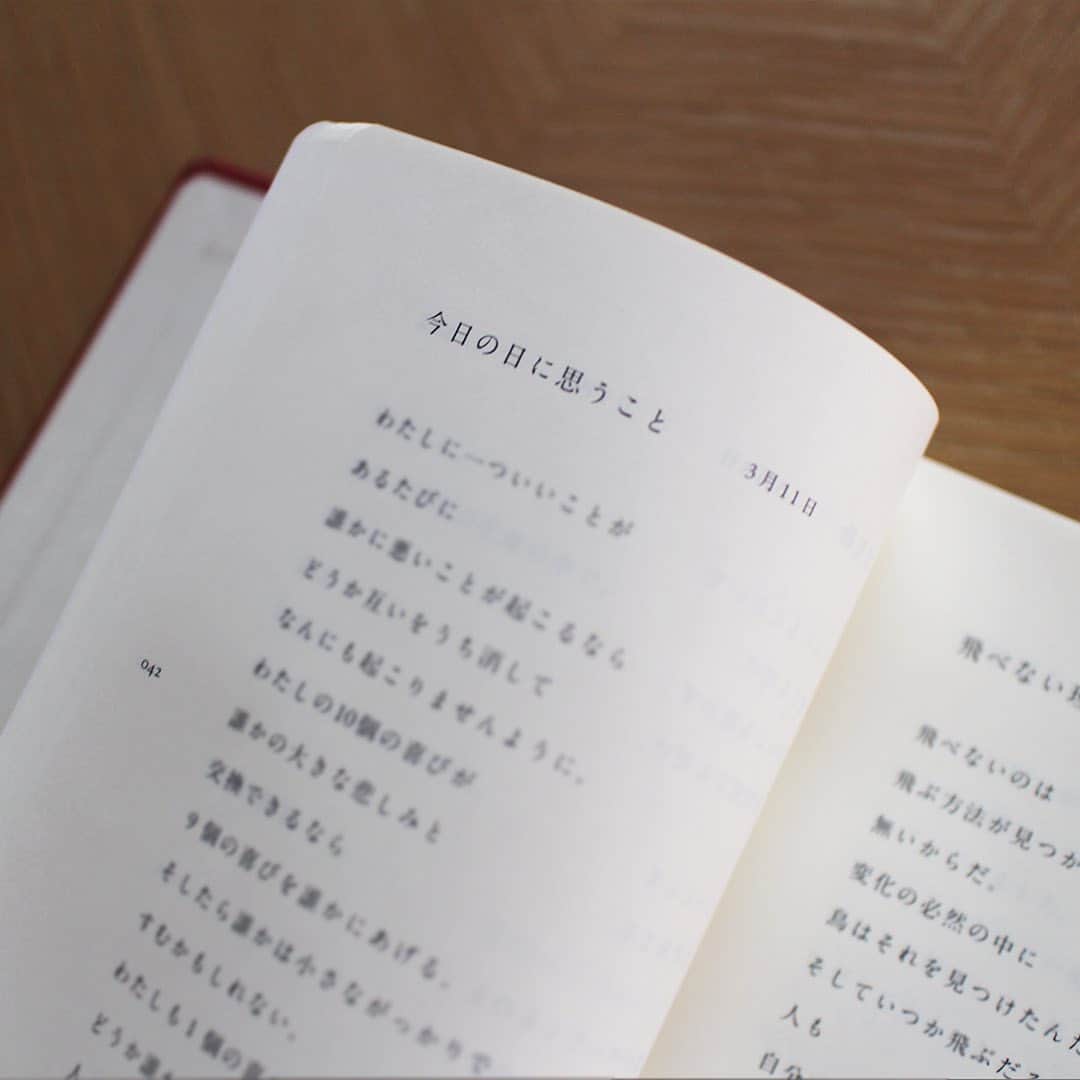 今日の日に思うこと
3月11日
わたしに一ついいことが
あるたびに
誰かに悪いことが起こるなら
どうか互いをうち消して
なんにも起こりませんように。
わたしの10個の喜びが
誰かの大きな悲しみと
交換できるなら
9個の喜びを誰かにあげる。
そしたら誰かは小さながっかりで
すむかもしれない。
わたしも1個の喜
どうか誰
人
042
飛べない理
飛べないのは
飛ぶ方法が見つか
無いからだ。
変化の必然の中に
鳥はそれを見つけたんだ
そしていつか飛ぶだろ
人も
自分